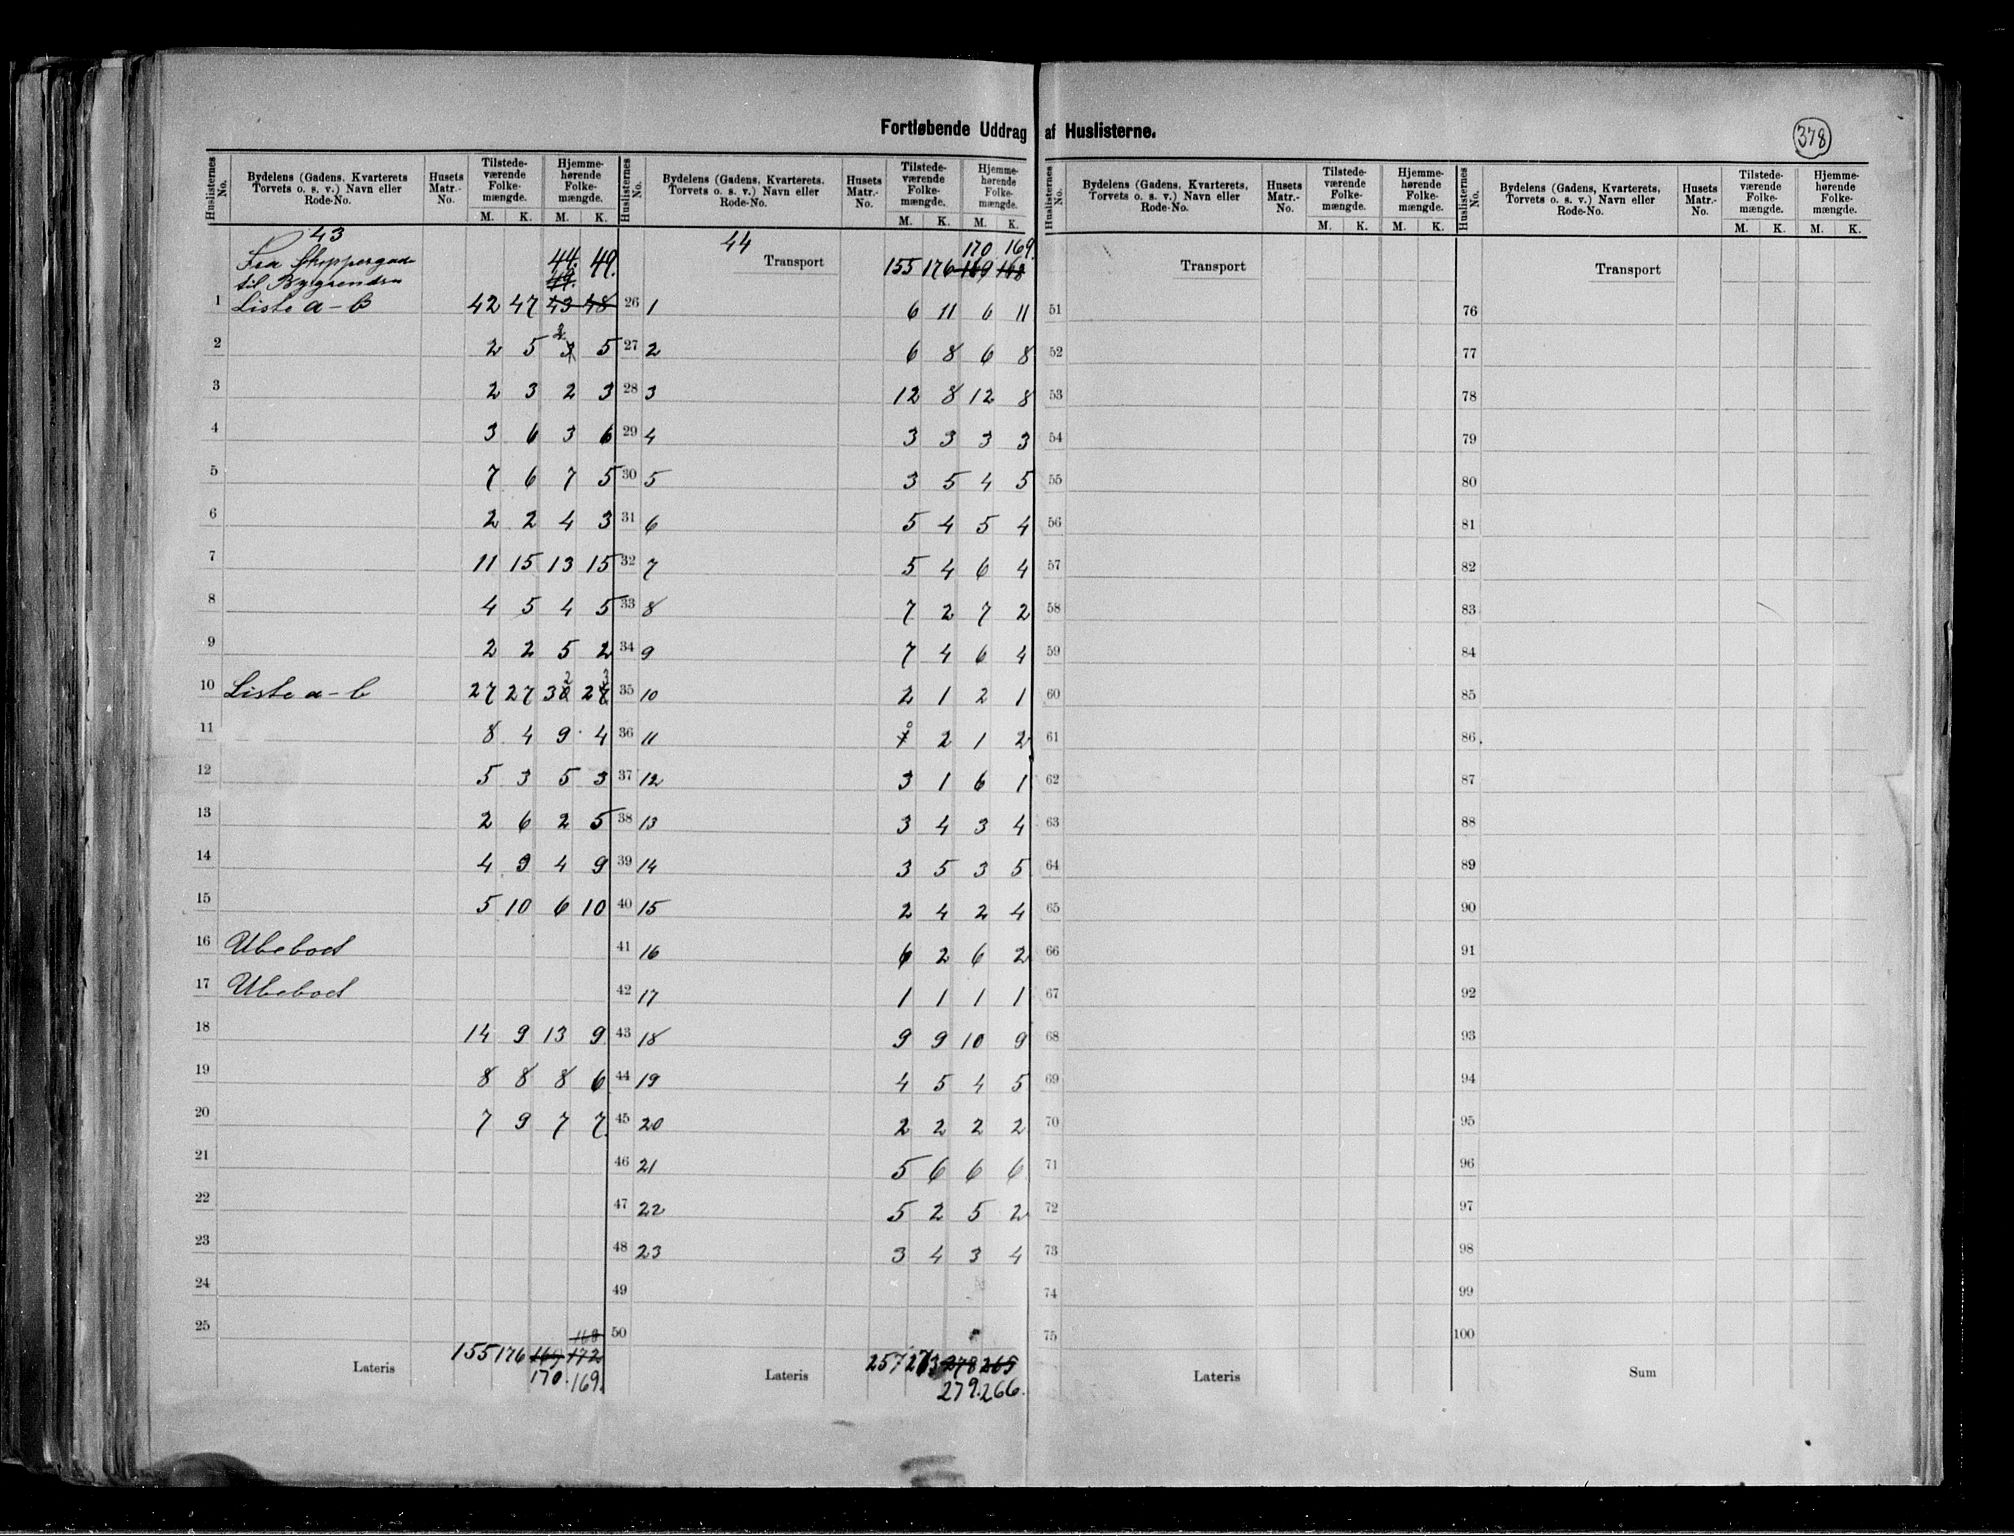 Fortløbende Uddrag af Huslisterne.
378
Huslisternes No. Bydelens (Gadens, Kvarterets Torvets o. s. v.) Navn eller Rode-No. Husets Matr.-No. Tilstedeværende Folkemængde. M. K. Hjemmehørende Folkemængde. M. K.
43
til Bygrendsen
44. 49.
1 Liste a-B 42 47 43 48
2 2 5 2 5
3 2 3 2 3
4 3 6 3 6
5 7 6 7 5
6 2 2 4 3
7 11 15 13 15
8 4 5 4 5
9 2 2 5 2
10 Liste a-b 27 27 32 23
11 8 4 9 4
12 5 3 5 3
13 2 6 2 5
14 4 9 4 9
15 5 10 6 10
16 Ubeboet
17 Ubeboet
18 14 9 13 9
19 8 8 8 6
20 7 9 7 7
21
22
23
24
25
168
Lateris 155 176 169 172
170. 169.
Huslisternes No. Bydelens (Gadens, Kvarterets, Torvets o. s. v.) Navn eller Rode-No. Husets Matr.-No. Tilstedeværende Folkemængde. M. K. Hjemmehørende Folkemængde. M. K.
44
170 169.
Transport 155 176 169 168
26 1 6 11 6 11
27 2 6 8 6 8
28 3 12 8 12 8
29 4 3 3 3 3
30 5 3 5 4 5
31 6 5 4 5 4
32 7 5 4 6 4
33 8 7 2 7 2
34 9 7 4 6 4
35 10 2 1 2 1
36 11 0 2 1 2
37 12 3 1 6 1
38 13 3 4 3 4
39 14 3 5 3 5
40 15 2 4 2 4
41 16 6 2 6 2
42 17 1 1 1 1
43 18 9 9 10 9
44 19 4 5 4 5
45 20 2 2 2 2
46 21 5 6 6 6
47 22 5 2 5 2
48 23 3 4 3 4
49
50
Lateris 257 273 278 265
279. 266.
Huslisternes No. Bydelens (Gadens, Kvarterets, Torvets o. s. v.) Navn eller Rode-No. Husets Matr.-No. Tilstedeværende Folkemængde. M. K. Hjemmehørende Folkemængde. M. K.
Transport
51
52
53
54
55
56
57
58
59
60
61
62
63
64
65
66
67
68
69
70
71
72
73
74
75
Lateris
Huslisternes No. Bydelens (Gadens, Kvarterets, Torvets o. s. v.) Navn eller Rode-No. Husets Matr.-No. Tilstedeværende Folkemængde. M. K. Hjemmehørende Folkemængde. M. K.
Transport
76
77
78
79
80
81
82
83
84
85
86
87
88
89
90
91
92
93
94
95
96
97
98
99
100
Sum